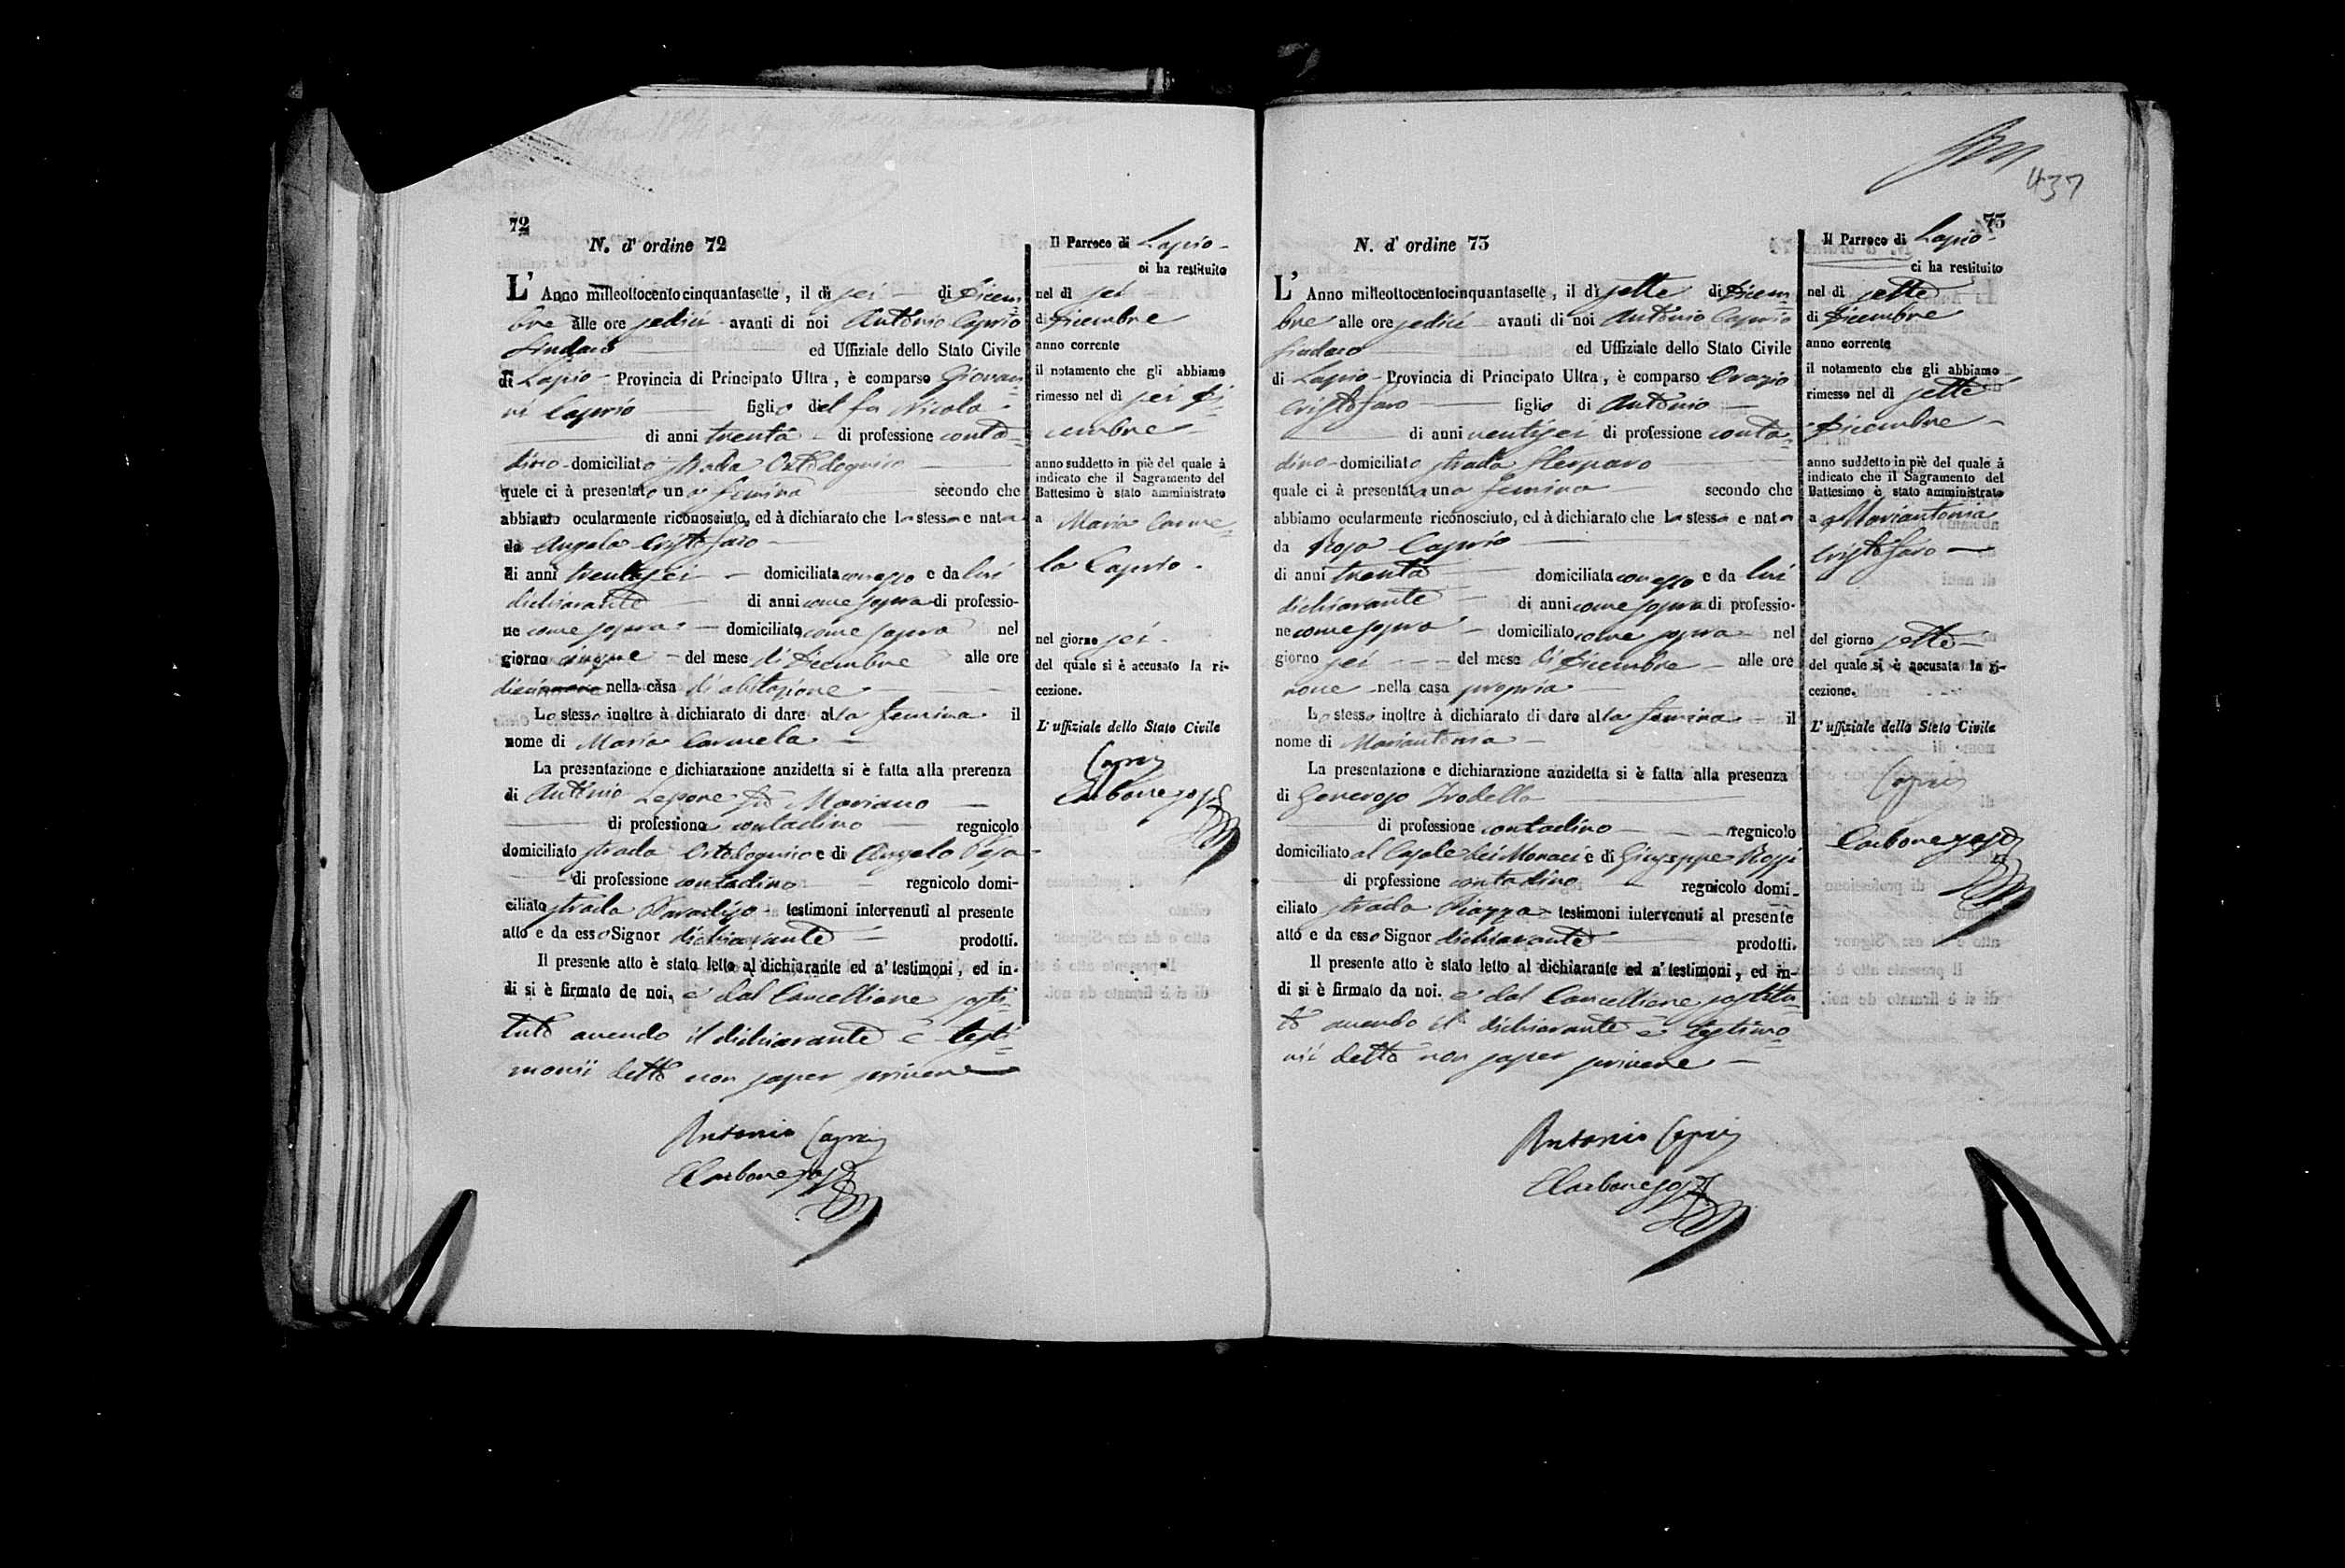 72
N. d' ordine 72
L' Anno milleottocentocinquantasette, il dì sei di Dicem
bre alle ore sedici avanti di noi Antonio Caprio
Sindaco ed Uffiziale dello Stato Civile
di Lapio Provincia di Principato Ultra, è comparso Giovan
ni Caprio figlio del fu Nicola
di anni trenta di professione conta
dino domiciliato strada
quale ci à presentato una femina secondo che
abbiamo ocularmente riconosciuto, ed à dichiarato che la stessa e nata
da Angela Cristofaro
di anni trentasei domiciliata con esso e da lui
dichiarante di anni come sopra di professio-
ne come sopra domiciliato come sopra nel
giorno cinque del mese di Dicembre alle ore
nella casa di abitazione
Lo stesso inoltre à dichiarato di dare alla femina il
nome di Maria Carmela
La presentazione e dichiarazione anzidetta si è fatta alla prerenza
di Antonio Lepore fu Mariano
di professione contadino regnicolo
domiciliato strada e di Angelo
di professione contadino regnicolo domi-
ciliato strada Paradiso testimoni intervenuti al presente
atto e da esso Signor dichiarante prodotti.
Il presente atto è stato letto al dichiarante ed a' testimoni, ed in-
di si è firmato de noi. e dal Cancelliere sosti
tuto avendo il dichiarante e testi
monii detto non saper scrivere
Antonio Caprio
Carbone sost
Il Parroco di Lapio
ci ha restituito
nel dì sei
di Dicembre
anno corrente
il notamento che gli abbiamo
rimesso nel dì sei Di
cembre
anno suddetto in piè del quale à
indicato che il Sagramento del
Battesimo è stato amministrato
a Maria Carme
la Caprio
nel giorno sei
del quale si è accusato la ri-
cezione.
L' uffiziale dello Stato Civile
Caprio
Carbone sost
437
73
N. d' ordine 73
L' Anno milleottocentocinquantasette, il dì sette di Dicem
bre alle ore sedici avanti di noi Antonio Caprio
Sindaco ed Uffiziale dello Stato Civile
di Lapio Provincia di Principato Ultra, è comparso Orazio
Cristofaro figlio di Antonio
di anni ventisei di professione conta
dino domiciliato strada
quale ci à presentata una femina secondo che
abbiamo ocularmente riconosciuto, ed à dichiarato che la stessa e nata
da Rosa Caprio
di anni trenta domiciliata con esso e da lui
dichiarante di anni come sopra di professio-
ne come sopra domiciliato come sopra nel
giorno sei del mese di Dicembre alle ore
nove nella casa propria
Lo stesso inoltre à dichiarato di dare alla femina il
nome di Mariantonia
La presentazione e dichiarazione anzidetta si è fatta alla presenza
di Generoso Trodella
di professione contadino regnicolo
domiciliato al Casale dei Monaci e di Giuseppe Rossi
di professione contadino regnicolo domi-
ciliato strada Piazza testimoni intervenuti al presente
atto e da esso Signor dichiarante prodotti.
Il presente atto è stato letto al dichiarante ed a' testimoni, ed in-
di si è firmato da noi. e dal Cancelliere sostitu
to avendo il dichiarante e testimo
nii detto non saper scrivere
Antonio Caprio
Carbone sost
Il Parroco di Lapio
ci ha restituito
nel dì sette
di Dicembre
anno corrente
il notamento che gli abbiamo
rimesso nel dì sette
Dicembre
anno suddetto in piè del quale à
indicato che il Sagramento del
Battesimo è stato amministrato
a Mariantonia
Cristofaro
del giorno sette
del quale si è accusata la ri-
cezione.
L' uffiziale dello Stato Civile
Caprio
Carbone sost